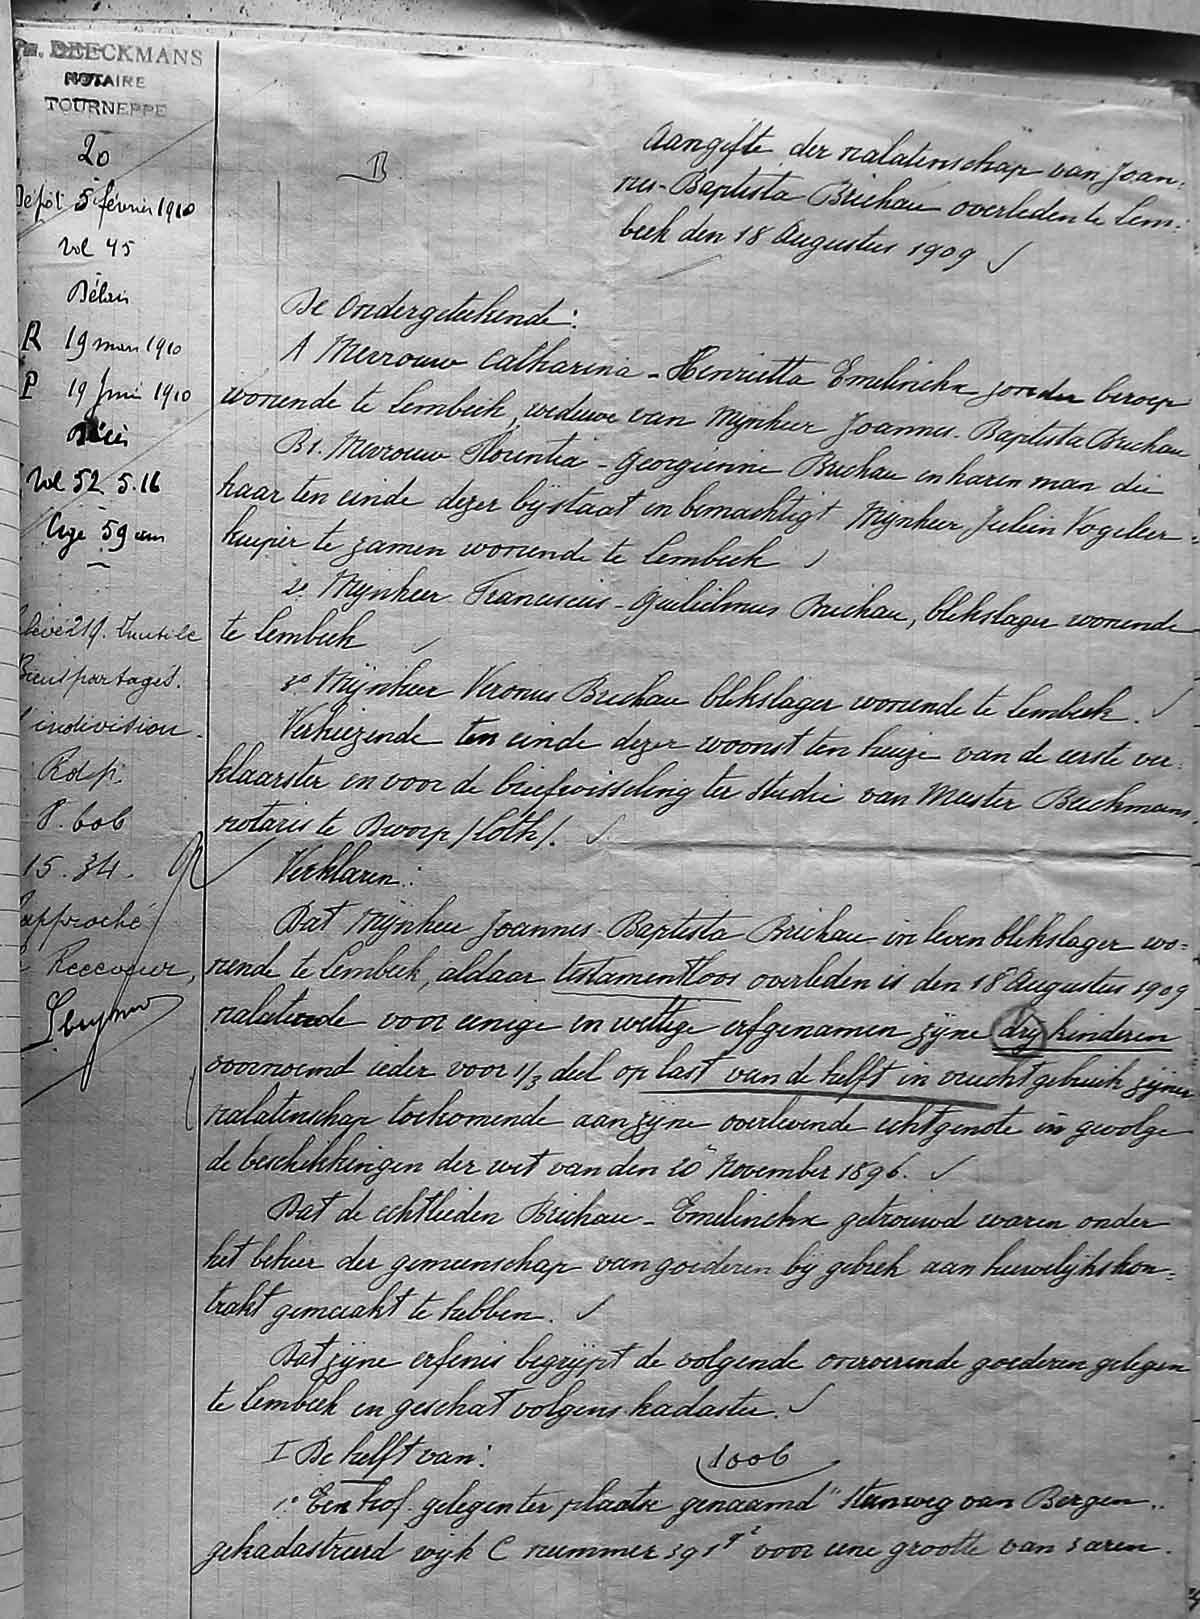 BEECKMANS
NOTAIRE
TOURNEPPE
20
Dépôt 5 février 1910
Vol 45
Délais
R 19 mars 1910
P 19 Juin 1910
Décès
Vol 52 5.16
Agé 59 ans
Inutile
Biens partagés.
l'indivision.
15. 34.
Receveur,
B
Aangifte der nalatenschap van Joan:
nes-Baptista Brichau overleden te Lem:
beek den 18 Augustus 1909
De Ondergeteekende:
A Mevrouw Catharina - Henrietta Emelinckx zonder beroep
wonende te Lembeek, weduwe van Mijnheer Joannes-Baptista Brichau
B 1. Mevrouw Florentia - Georgienne Brichau en haren man die
haar ten einde dezer bijstaat en bemachtigt Mijnheer Julien Vogeleer =
kuiper te zamen wonende te Lembeek
2º Mijnheer Franciscus - Guilielmus Brichau, blekslager wonende
te Lembeek
3º Mijnheer Veronus Brichau blekslager wonende te Lembeek.
Verkiezende ten einde dezer woonst ten huize van de eerste ver:
klaarster en voor de briefwisseling ter studie van Meester Beeckmans,
notaris te Dworp /Loth/.
Verklaren:
Dat Mijnheer Joannes-Baptista Brichau in leven blekslager wo=
nende te Lembeek, aldaar testamentloos overleden is den 18 Augustus 1909
nalatende voor eenige en wettige erfgenamen zijne drij kinderen
voornoemd ieder voor 1/3 deel op last van de helft in vruchtgebruik zijner
nalatenschap toekomende aan zijne overlevende echtgenote in gevolge
de beschikkingen der wet van den 20 November 1896.
Dat de echtlieden Brichau - Emelinckx getrouwd waren onder
het beheer der gemeenschap van goederen bij gebrek aan huwelijkskon=
trakt gemaakt te hebben.
Dat zijne erfenis begrijpt de volgende onroerende goederen gelegen
te Lembeek en geschat volgens kadaster.
I De helft van:
1006
1º Een hof gelegen ter plaatse genaamd "Steenweg van Bergen"
gekadastreerd wijk C nummer 391 voor eene grootte van 3 aren.